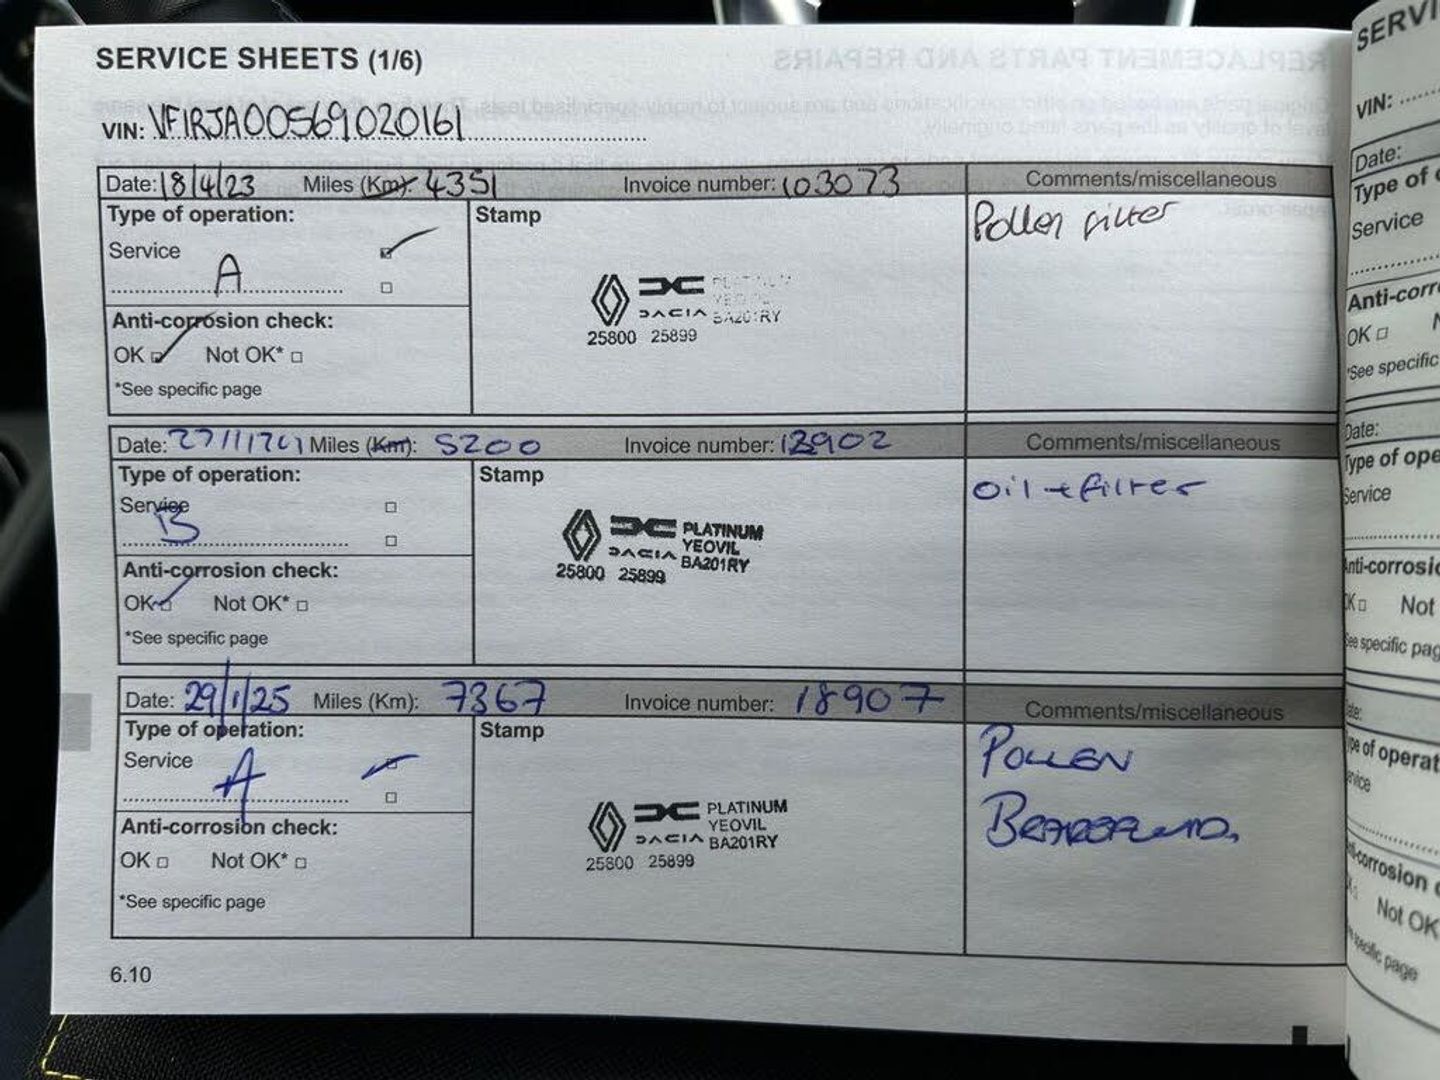 SERVICE SHEETS (1/6)
VIN: VF1RJA00569020161
Date: 18/4/23 Miles (Km): 4351 Invoice number: 103073 Comments/miscellaneous
Type of operation: Stamp Pollen filter
Service
A
PLATINUM
YEOVIL
DACIA BA201RY
25800 25899
Anti-corrosion check:
OK Not OK*
*See specific page
Date: Miles (Km): 5200 Invoice number: Comments/miscellaneous
Type of operation: Stamp oil + filter
Service
B
PLATINUM
YEOVIL
DACIA BA201RY
25800 25899
Anti-corrosion check:
OK Not OK*
*See specific page
Date: 29/1/25 Miles (Km): 7367 Invoice number: 18907 Comments/miscellaneous
Type of operation: Stamp POLLEN
Service
A
PLATINUM
YEOVIL
DACIA BA201RY
25800 25899
Anti-corrosion check:
OK Not OK*
*See specific page
6.10
SERVI
VIN:
Date:
Type of
Service
Anti-corr
OK
*See specific
Date:
Type of ope
Service
Anti-corrosi
Not
See specific pag
of operat
corrosion
Not OK
specific page